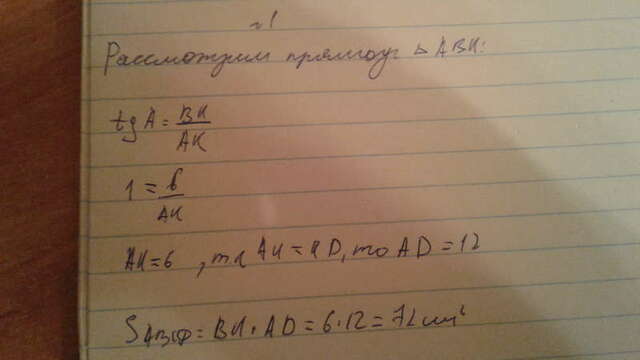 №1
Рассмотрим прямоуг ▷ ABH:
tg A = BH/AH
1 = 6/AH
AH=6, т.к AH=HD, то AD=12
S = BH·AD=6·12=72см²